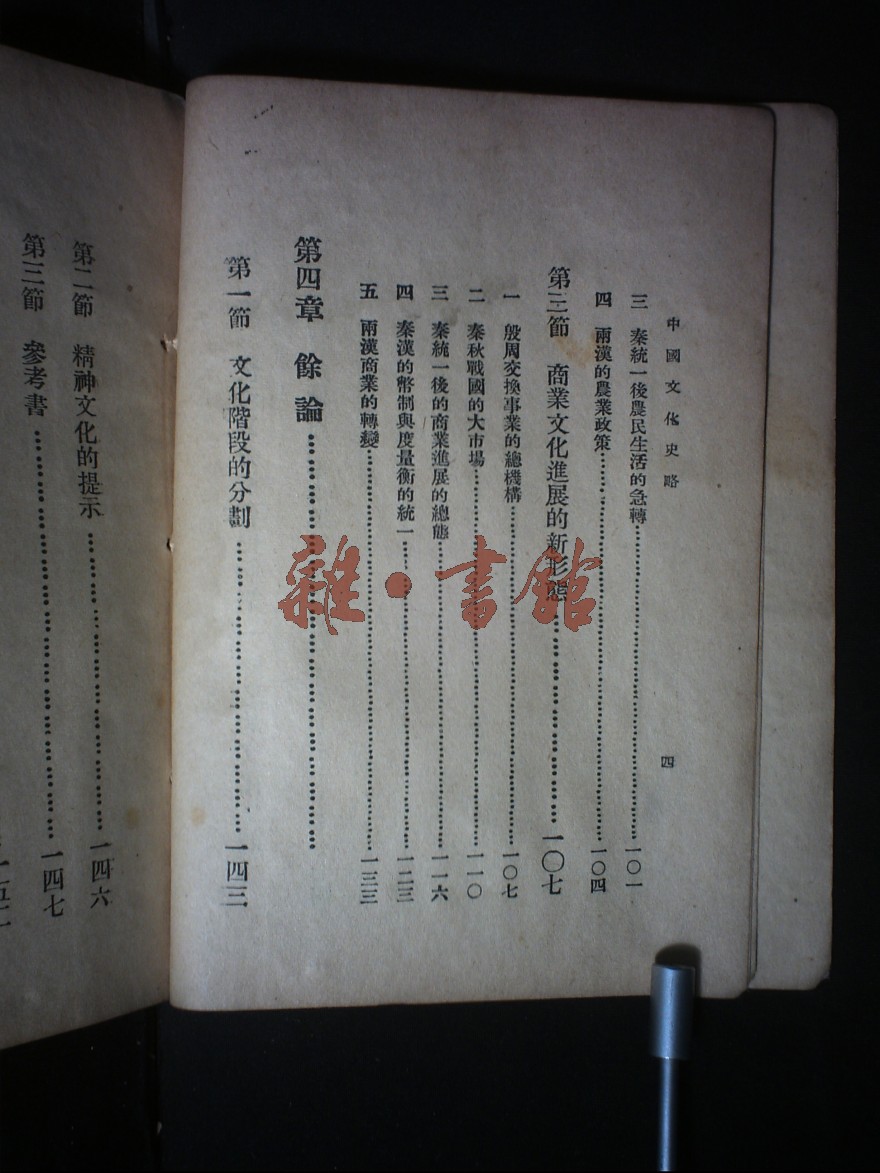 中國文化史略
四
三 秦統一後農民生活的急轉……一〇一
四 兩漢的農業政策……一〇四
第三節 商業文化進展的新形態……一〇七
一 殷周交換事業的總機構……一〇七
二 春秋戰國的大市場……一一〇
三 秦統一後的商業進展的總態……一一六
四 秦漢的幣制與度量衡的統一……一二三
五 兩漢商業的轉變……一三三
第四章 餘論……
第一節 文化階段的分劃……一四三
第二節 精神文化的提示……一四六
第三節 參考書……一四七
雜·書館